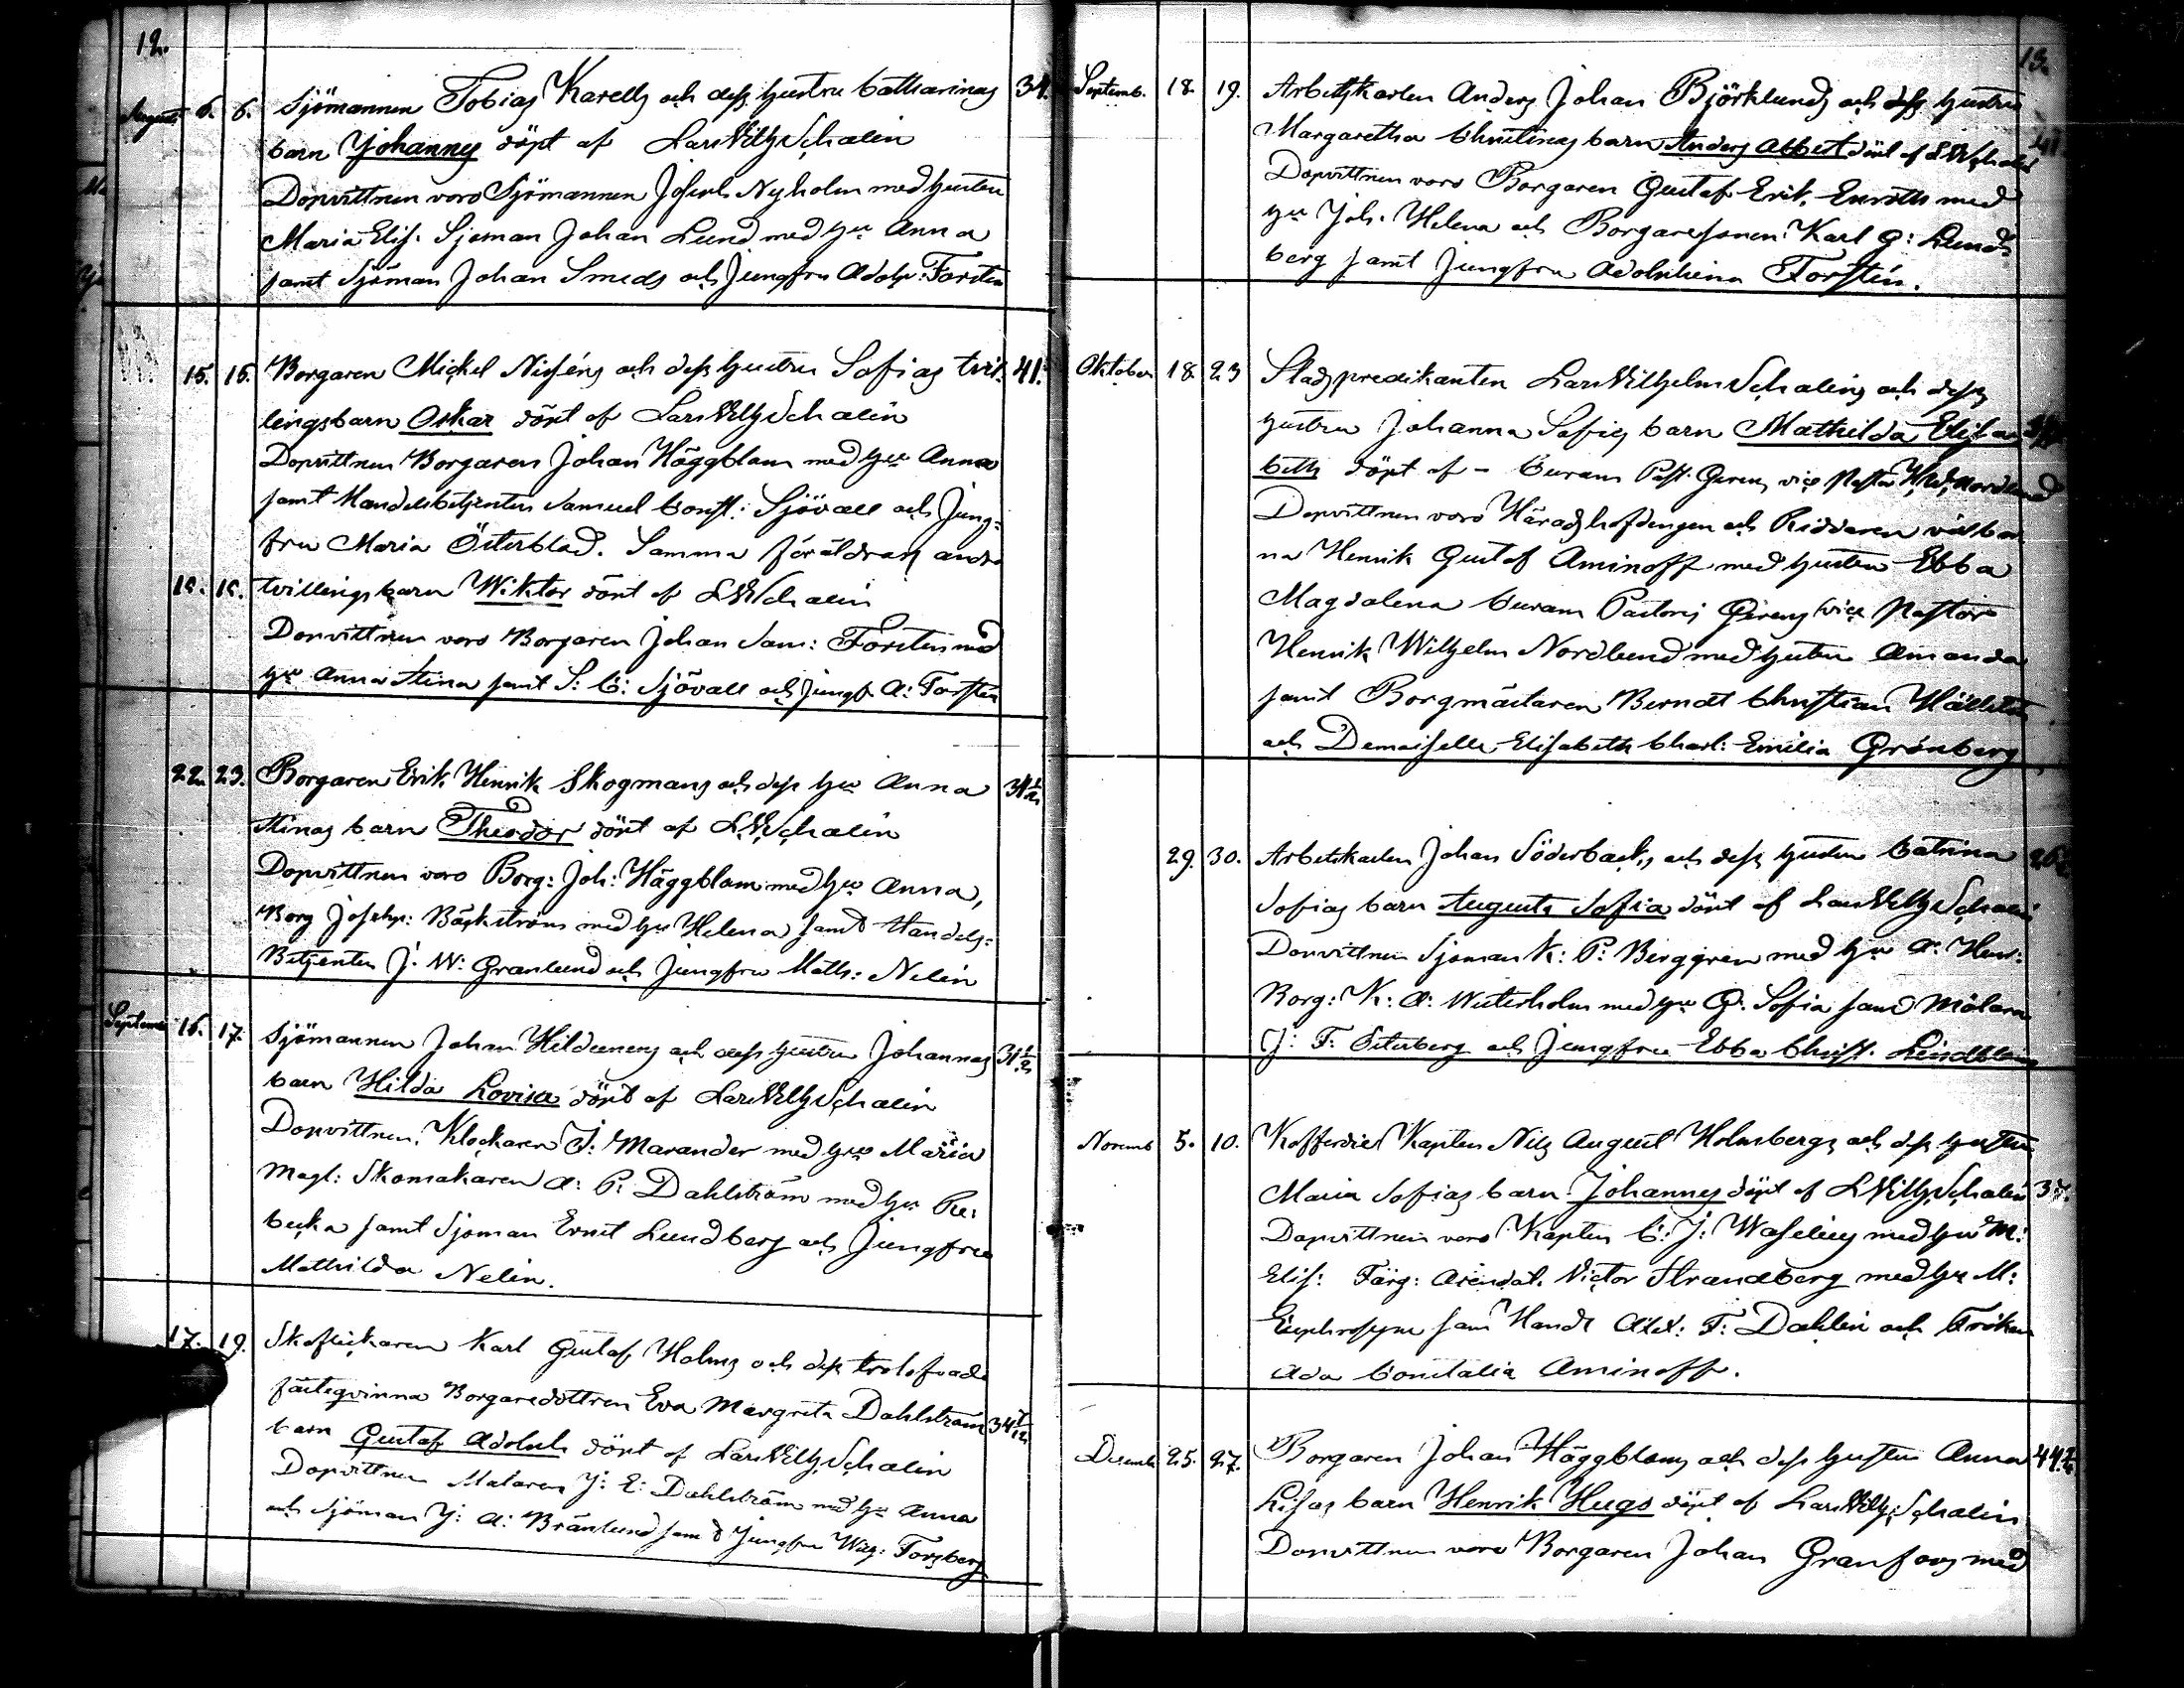 12.
Augusti 6. 6. Sjömannen Tobias Karells och dess hustru Catharinas 34.
barn Johannes döpt af Lars Wilh Schalin
Dopvittnen voro Sjömannen Joseph Nyholm med hustru
Maria Elis. Sjöman Johan Lund med hu Anna
samt Sjöman Johan Smeds och Jungfru Adolp: Forstén
15. 15. Borgaren Mickel Niséns och dess hustru Sofias tvil- 41.
lingsbarn Oskar döpt af Lars Wilh Schalin
Dopvittnen Borgaren Johan Häggblom med hu Anna
samt Handelsbetjenten Samuel Const: Sjövall och Jung-
fru Maria Österblad. Samma föräldrars andra
15. 15. tvillingsbarn Wiktor döpt af LWSchalin
Dopvittnen voro Borgaren Johan Sam: Forstén med
hu Anna Stina samt S: C: Sjövall och Jungf. A: Forstén
22. 23. Borgaren Erik Henrik Skogmans och dess hu Anna 34½
Stinas barn Theodor döpt af L.W.Schalin
Dopvittnen voro Borg: Joh: Häggblom med hu Anna,
Borg Joseph: Bäckström med hu Helena samt Handels-
Betjenten J. W: Granlund och Jungfru Math: Nelin
September 16. 17. Sjömannen Johan Hildeens och dess hustru Johannas 31½
barn Hilda Lovisa döpt af Lars Wilh Schalin
Dopvittnen. Klockaren J: Marander med hu Maria
Magl: Skomakaren A: P: Dahlström med hu Re-
becka samt Sjöman Ernst Lundberg och Jungfru
Mathilda Nelin.
17. 19. Skoflickaren Karl Gustaf Holms och dess trolofvade
fästeqvinna Borgaredottren Eva Margreta Dahlström 34
barn Gustaf Adolph döpt af Lars Wilh. Schalin
Dopvittnen Målaren J: E: Dahlström med hu Anna
och Sjöman J: A: Brånlund samt Jungfru Wilh: Forsberg
13.
Septemb. 18. 19. Arbetskarlen Anders Johan Björklunds och dess hustru
Margaretha Christinas barn Anders Albert döpt af LWSchalin 41.
Dopvittnen voro Borgaren Gustaf Erik. Enroth med
hu Joh. Helena och Borgaresonen Karl G: Lund-
berg samt Jungfru Adolphina Forstén.
Oktober 18. 23 Stadspredikanten Lars Wilhelm Schalins och dess
hustru Johanna Sofias barn Mathilda Elisa-
beth döpt af - Curam Past. Gerens vice Pastor H. W. Nordlund
Dopvittnen voro Häradshöfdingen och Riddaren välbor-
na Henrik Gustaf Aminoff med hustru Ebba
Magdalena Curam Pastoris Gerens vice Pastor
Henrik Wilhelm Nordlund med hustru Amanda
samt Borgmästaren Berndt Christian Hällsten
och Demoiselle Elisabeth Charl: Emilia Grönberg
29. 30. Arbetskarlen Johan Söderbacks och dess hustru Catrina 26
Sofias barn Augusta Sofia döpt af Lars Wilh Schalin
Dopvittnen Sjöman K: P: Berggren med hu A: Henr:
Borg: K: A: Westerholm med hu G. Sofia samt Målaren
J: F: Österberg och Jungfru Ebba Christ. Lindblom
Novemb 5. 10. Kofferdie Kapten Nils August Holmbergs och dess hustru
Maria Sofias barn Johannes döpt af L Wilh. Schalin 37.
Dopvittnen voro Kapten C: J: Waselius med hu M:
Elis: Färg: Arendat. Victor Strandberg med hu M:
Euphrosyne sam Handl Alex: F: Dahlin och Fröken
Ada Constatia Aminoff.
Decemb 25. 27. Borgaren Johan Häggbloms och dess hustru Anna 44
Lisas barn Henrik Hugo döpt af Lars Wilh. Schalin
Dopvittnen voro Borgaren Johan Granfors med